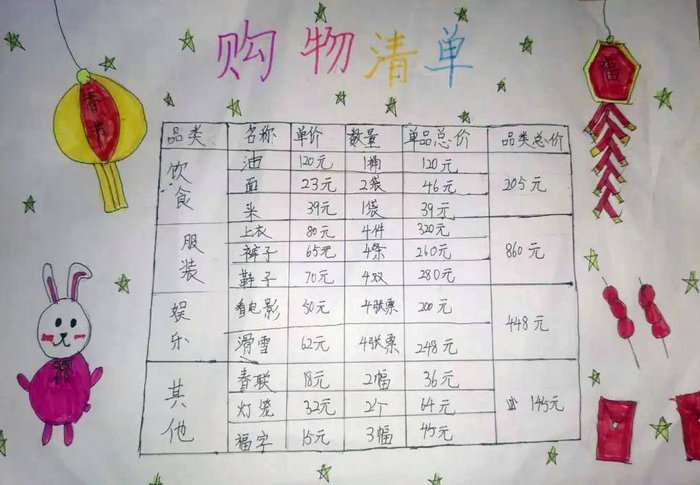 购物清单
品类 名称 单价 数量 单品总价 品类总价
饮食 油 120元 1桶 120元 205元
面 23元 2袋 46元
米 39元 1袋 39元
服装 上衣 80元 4件 320元 860元
裤子 65元 4条 260元
鞋子 70元 4双 280元
娱乐 看电影 50元 4张票 200元 448元
滑雪 62元 4张票 248元
其他 春联 18元 2幅 36元 145元
灯笼 32元 2个 64元
福字 15元 3幅 45元
福